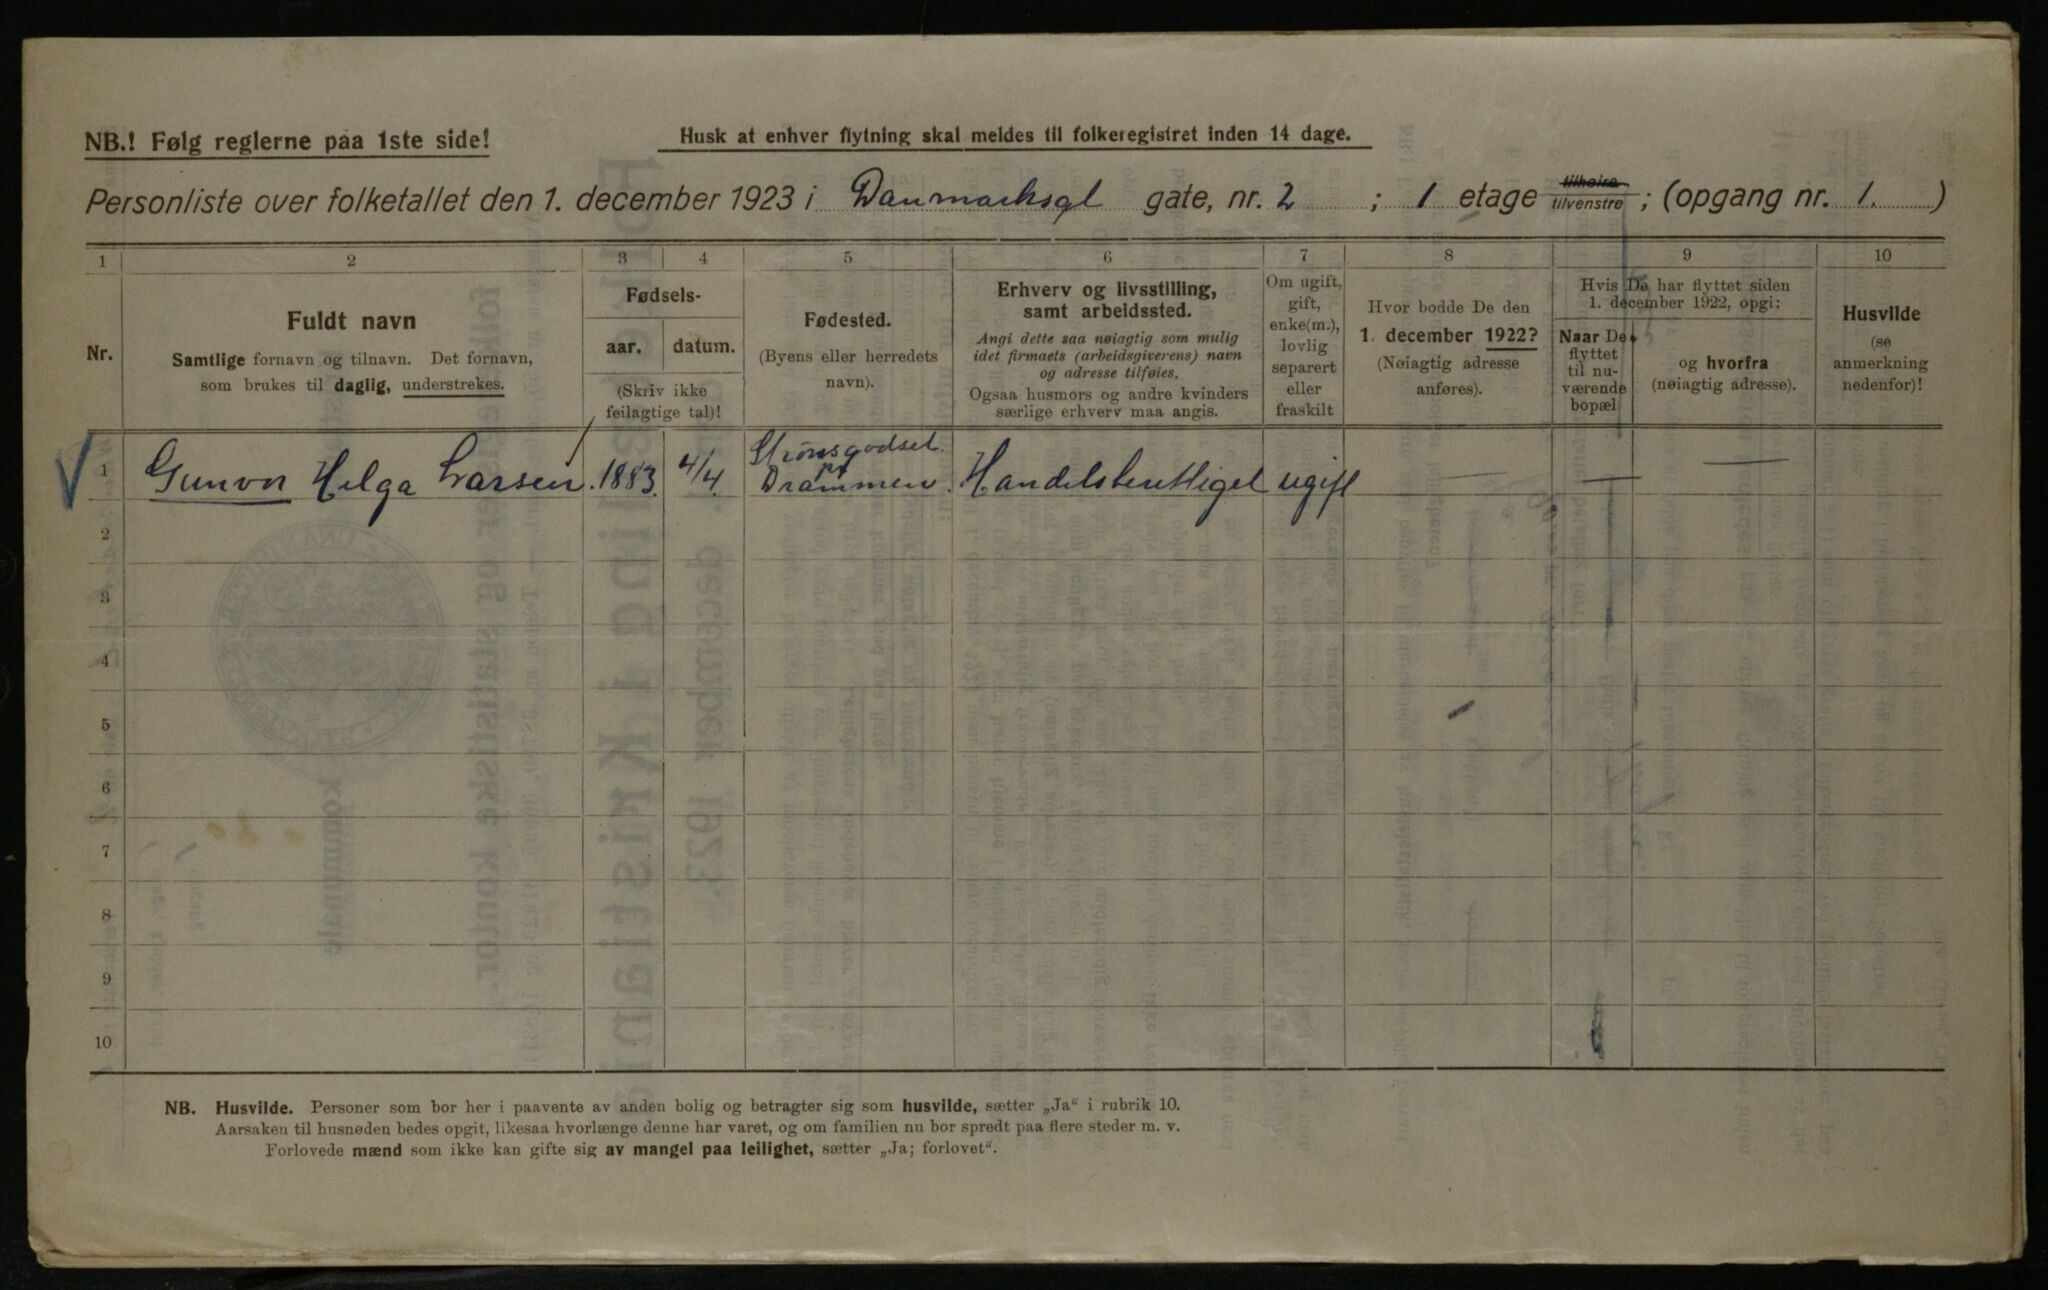 NB.! Følg reglerne paa 1ste side!
Husk at enhver flytning skal meldes til folkeregistret inden 14 dage.
Personliste over folketallet den 1. december 1923 i Danmarksgt gate, nr. 2 ; 1 etage tilhøire tilvenstre ; (opgang nr. 1. )
1 2 3 4 5 6 7 8 9 10
Nr.
Fuldt navn
Samtlige fornavn og tilnavn. Det fornavn,
som brukes til daglig, understrekes.
Fødsels-
aar. datum.
(Skriv ikke
feilagtige tal)!
Fødested.
(Byens eller herredets
navn).
Erhverv og livsstilling,
samt arbeidssted.
Angi dette saa nøiagtig som mulig
idet firmaets (arbeidsgiverens) navn
og adresse tilføies.
Ogsaa husmors og andre kvinders
særlige erhverv maa angis.
Om ugift,
gift,
enke(m.),
lovlig
separert
eller
fraskilt
Hvor bodde De den
1. december 1922?
(Nøiagtig adresse
anføres).
Hvis De har flyttet siden
1. december 1922, opgi:
Naar De
flyttet
til nu-
værende
bopæl
og hvorfra
(nøiagtig adresse).
Husvilde
(se
anmerkning
nedenfor)!
Strømsgodset
1 Gunvor Helga Larsen. 1883. 4/4. pr Drammen. Handelsberettiget ugift — — —
2
3
4
5
6
7
8
9
10
NB. Husvilde. Personer som bor her i paavente av anden bolig og betragter sig som husvilde, sætter „Ja“ i rubrik 10.
Aarsaken til husnøden bedes opgit, likesaa hvorlænge denne har varet, og om familien nu bor spredt paa flere steder m. v.
Forlovede mænd som ikke kan gifte sig av mangel paa leilighet, sætter „Ja; forlovet“.